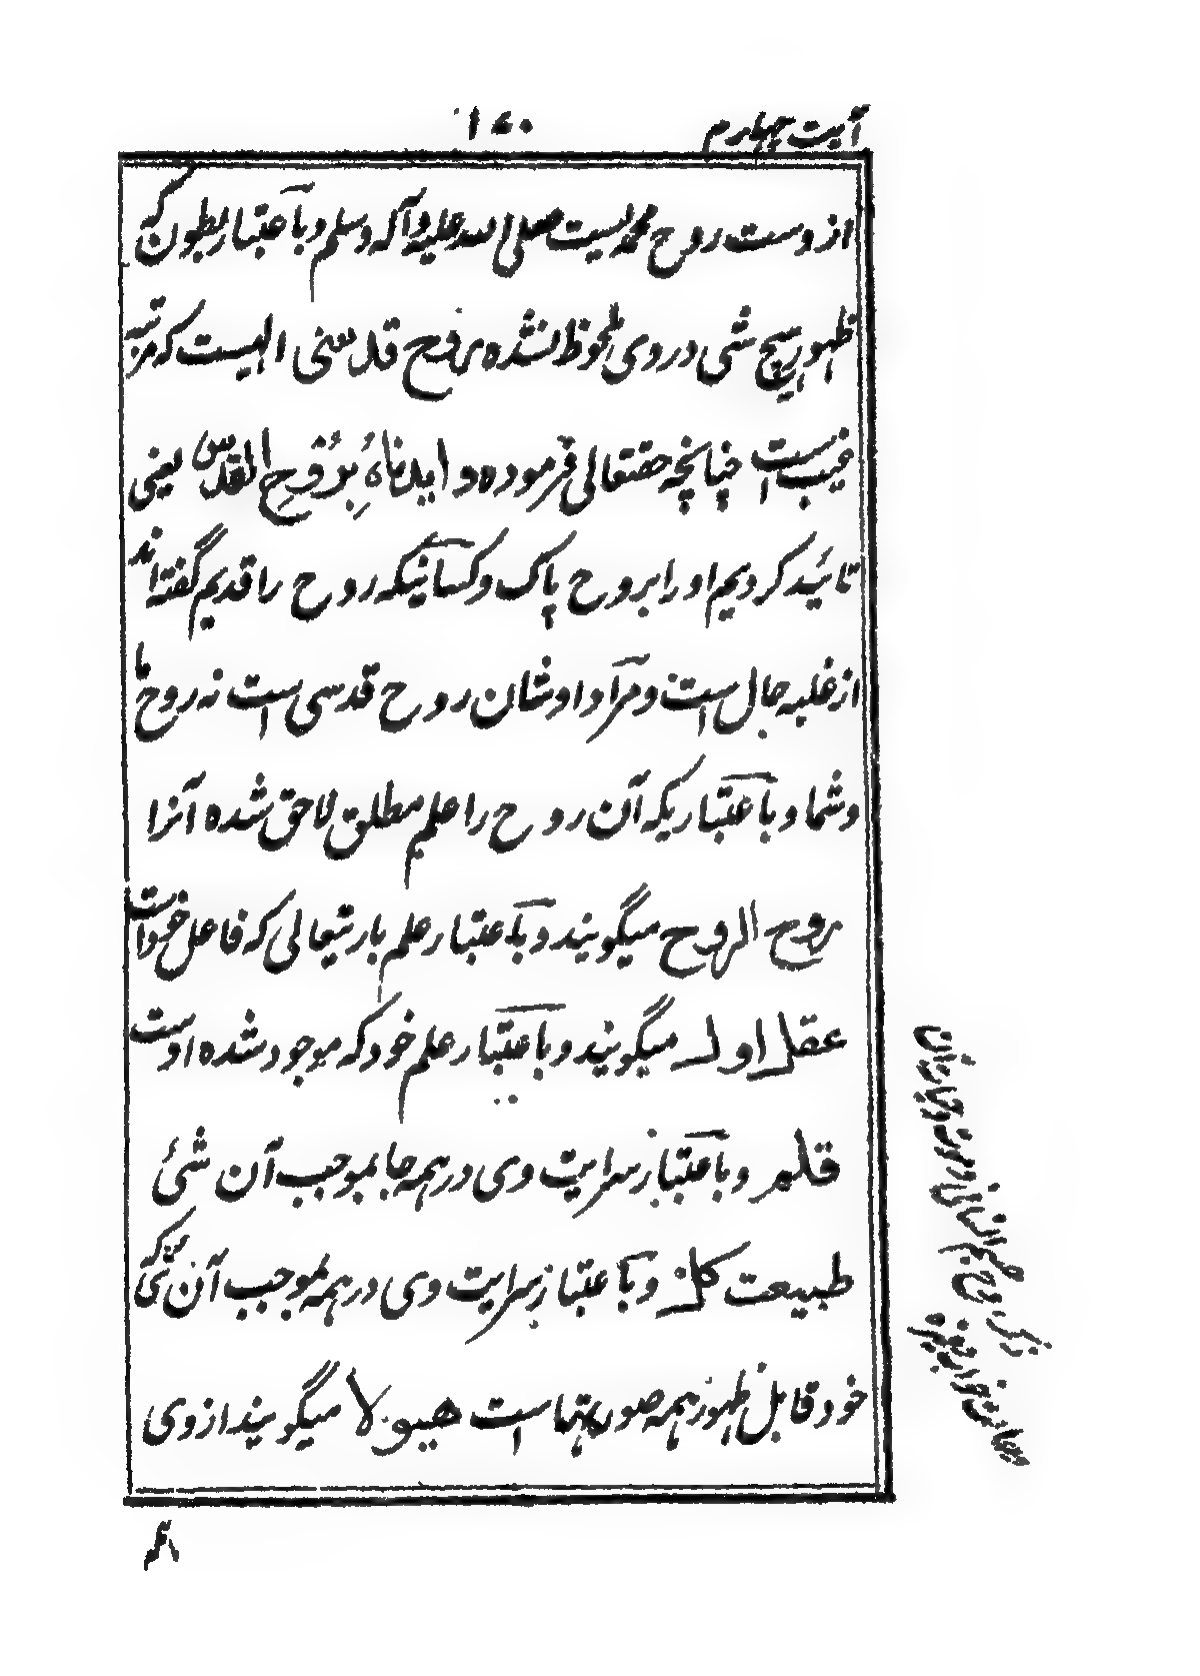 آیت چهارم ۱۶۰
از وست روح محمدیست صلی الله علیه وآله وسلم و باعتبار بطون که
ظهور هیچ شی در وی ملحوظ نشده روح قدسی الهیست که مرتبه
غیب است چنانچه حقتعالی فرموده و ایدناهُ بِرُوحِ القدس یعنی
تائید کردیم او را بروح پاک و کسانیکه روح را قدیم گفته اند
از غلبه حال است و مراد اوشان روح قدسی است نه روح ما
و شما و باعتباریکه آن روح را علم مطلق لاحق شده آنرا
روح الروح میگویند و باعتبار علم باریتعالی که فاعل خود است
عقل اول میگویند و باعتبار علم خود که موجود شده اوست
قلم و باعتبار سرایت وی در همه جا بموجب آن شئ
طبیعت کل و باعتبار سرایت وی در همه بموجب آن که
خود قابل ظهور همه صورتهاست هیولا میگویند از وی
ذکر روح جسم انسانی و